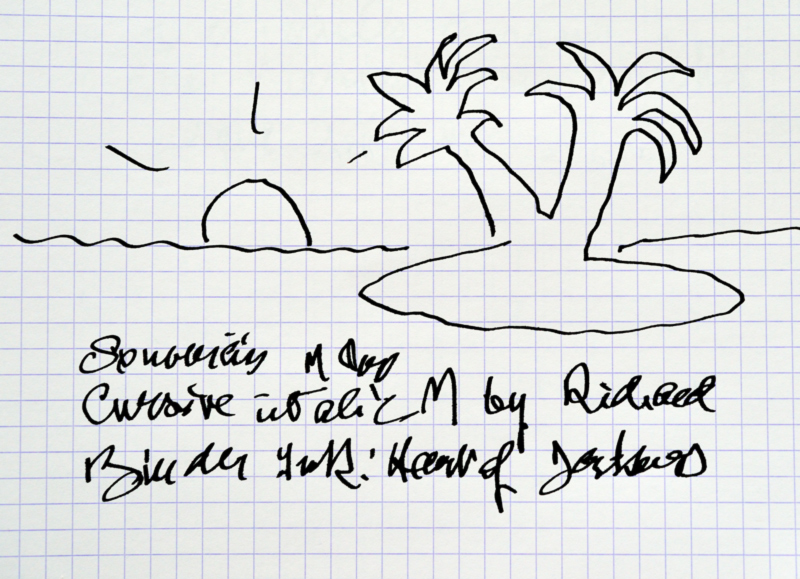 Souverän M 800
Cursive italic M by Richard
Binder Ink: Heart of Darkness